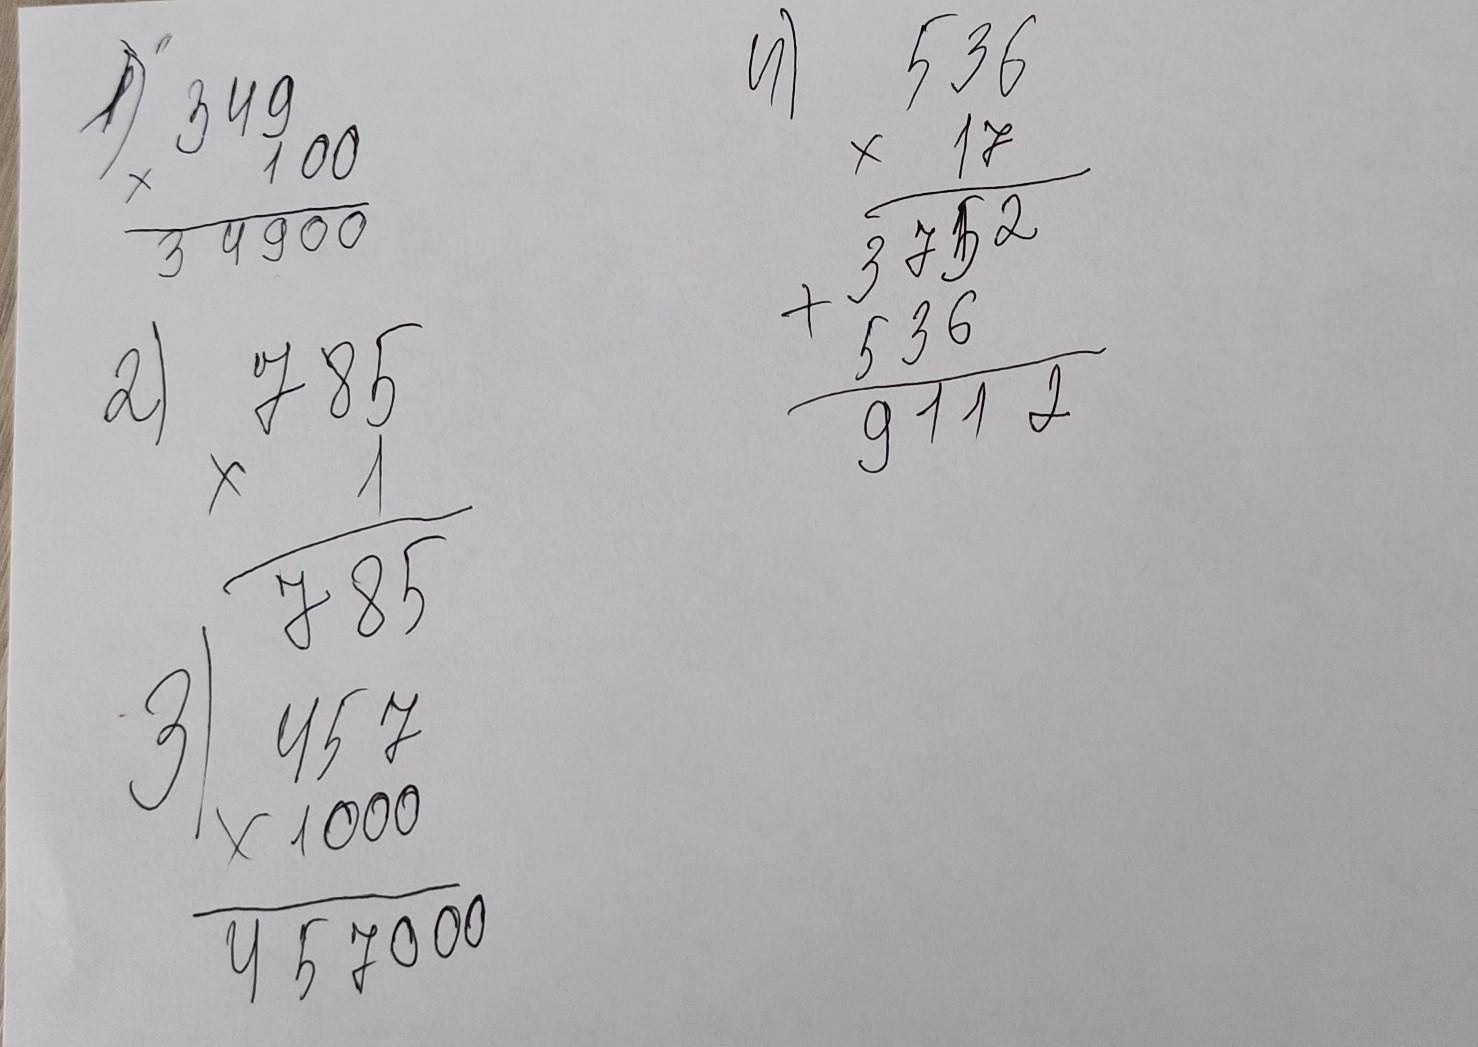 1) 349
× 100
34900
2) 785
× 1
785
3) 457
× 1000
457000
4) 536
× 17
3752
+ 536
9112